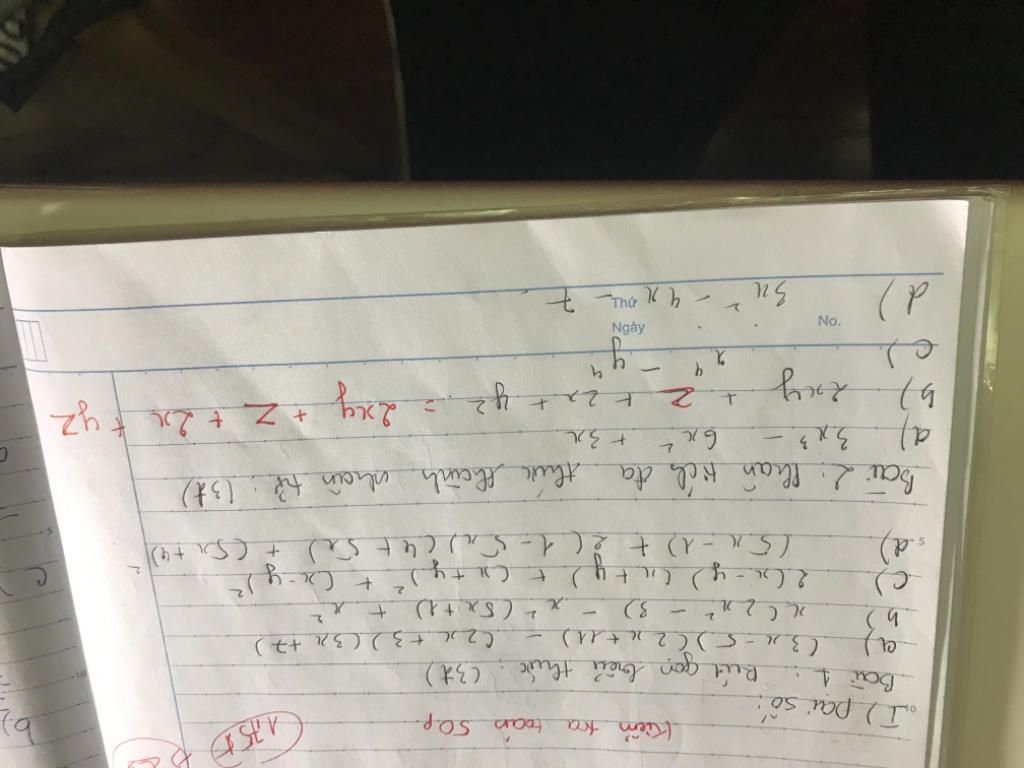 Kiểm tra toán 50p
1,75đ
I) Đại số:
Bài 1: Rút gọn biểu thức: (3đ)
a) (3x - 5)(2x + 11) - (2x + 3)(3x + 7)
b) x(2x² - 3) - x²(5x + 1) + x²
c) 2(x - y)(x + y) + (x + y)² + (x - y)²
d) (5x - 1) + 2(1 - 5x)(4 + 5x) + (5x + 4)²
Bài 2: Phân tích đa thức thành nhân tử: (3đ)
a) 3x³ - 6x² + 3x
b) 2xy + z + 2x + yz = 2xy + z + 2x + yz
c) x⁴ - y⁴
d) 3x² - 4x - 7
No.
Thứ
Ngày
c)
b)